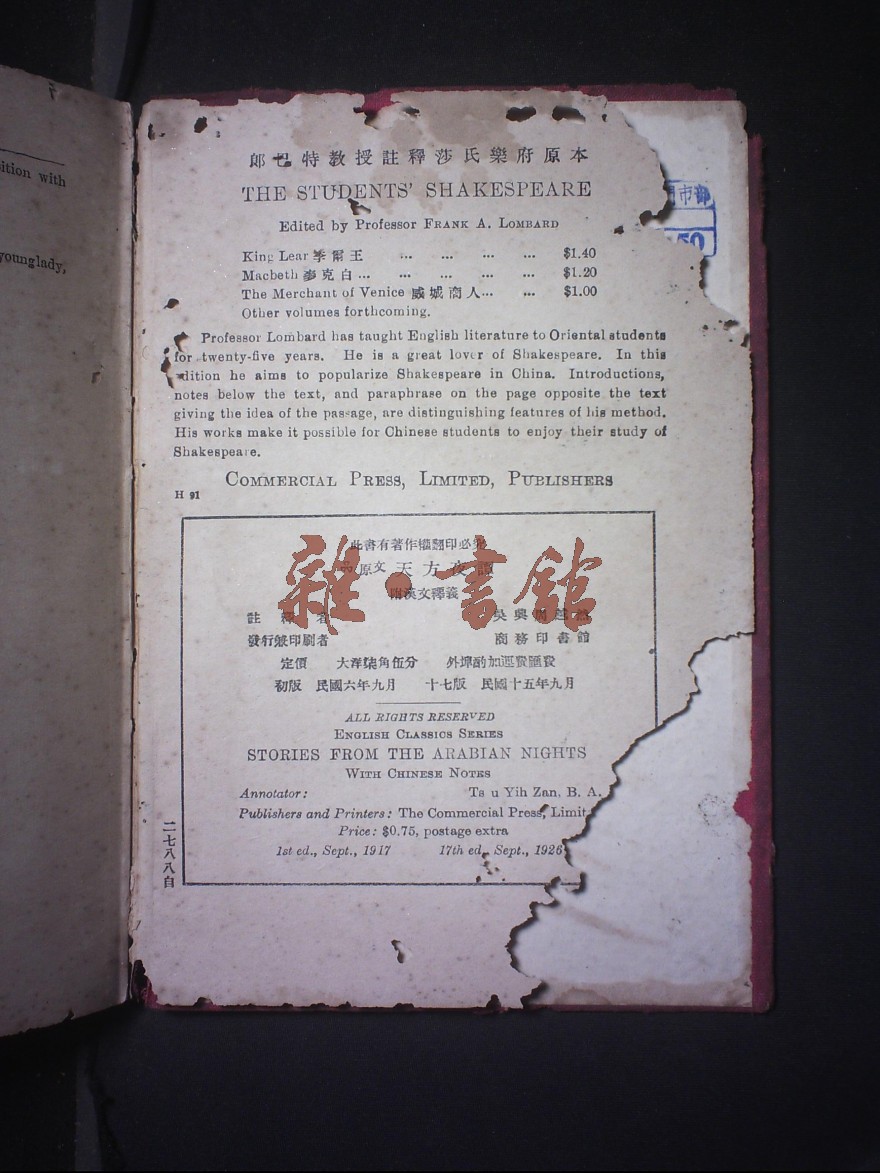 ition with
younglady,
郎巴特教授註釋莎氏樂府原本
THE STUDENTS' SHAKESPEARE
Edited by Professor FRANK A. LOMBARD
King Lear 季爾王 ... ... ... ... $1.40
Macbeth 麥克白 ... ... ... ... ... $1.20
The Merchant of Venice 威城商人 ... ... $1.00
Other volumes forthcoming.
Professor Lombard has taught English literature to Oriental students
for twenty-five years. He is a great lover of Shakespeare. In this
edition he aims to popularize Shakespeare in China. Introductions,
notes below the text, and paraphrase on the page opposite the text
giving the idea of the passage, are distinguishing features of his method.
His works make it possible for Chinese students to enjoy their study of
Shakespeare.
COMMERCIAL PRESS, LIMITED, PUBLISHERS
H 91
市部
50
此書有著作權翻印必究
原文 天方夜譚
附漢文釋義
註釋者 吳興
發行兼印刷者 商務印書館
定價 大洋柒角伍分 外埠酌加運費匯費
初版 民國六年九月 十七版 民國十五年九月
雜·書館
ALL RIGHTS RESERVED
ENGLISH CLASSICS SERIES
STORIES FROM THE ARABIAN NIGHTS
WITH CHINESE NOTES
Annotator: Tseu Yih Zan, B. A.
Publishers and Printers: The Commercial Press, Limit
Price: $0.75, postage extra
1st ed., Sept., 1917 17th ed., Sept., 1926
二七八八自